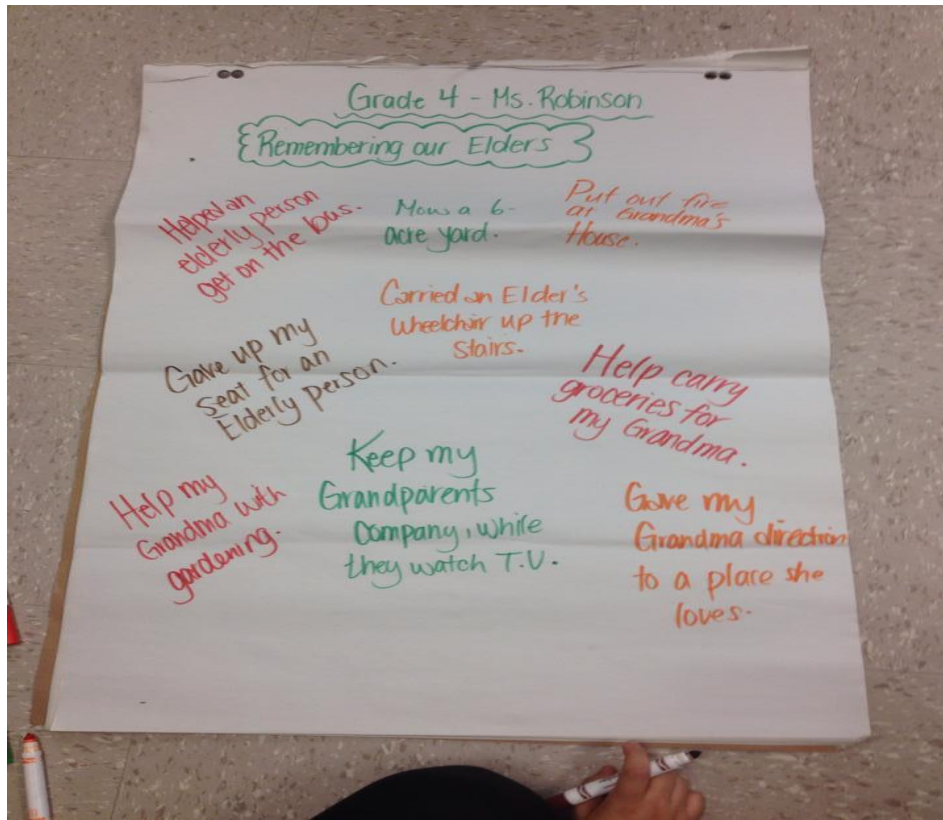 Grade 4 - Ms. Robinson
Remembering our Elders
Helped an
elderly person
get on the bus.
Mow a 6-
acre yard.
Put out fire
at Grandma's
House.
Carried an Elder's
Wheelchair up the
Stairs.
Gave up my
seat for an
Elderly person.
Help carry
groceries for
my Grandma.
Help my
Grandma with
gardening.
Keep my
Grandparents
Company, while
they watch T.V.
Gave my
Grandma direction
to a place she
loves.